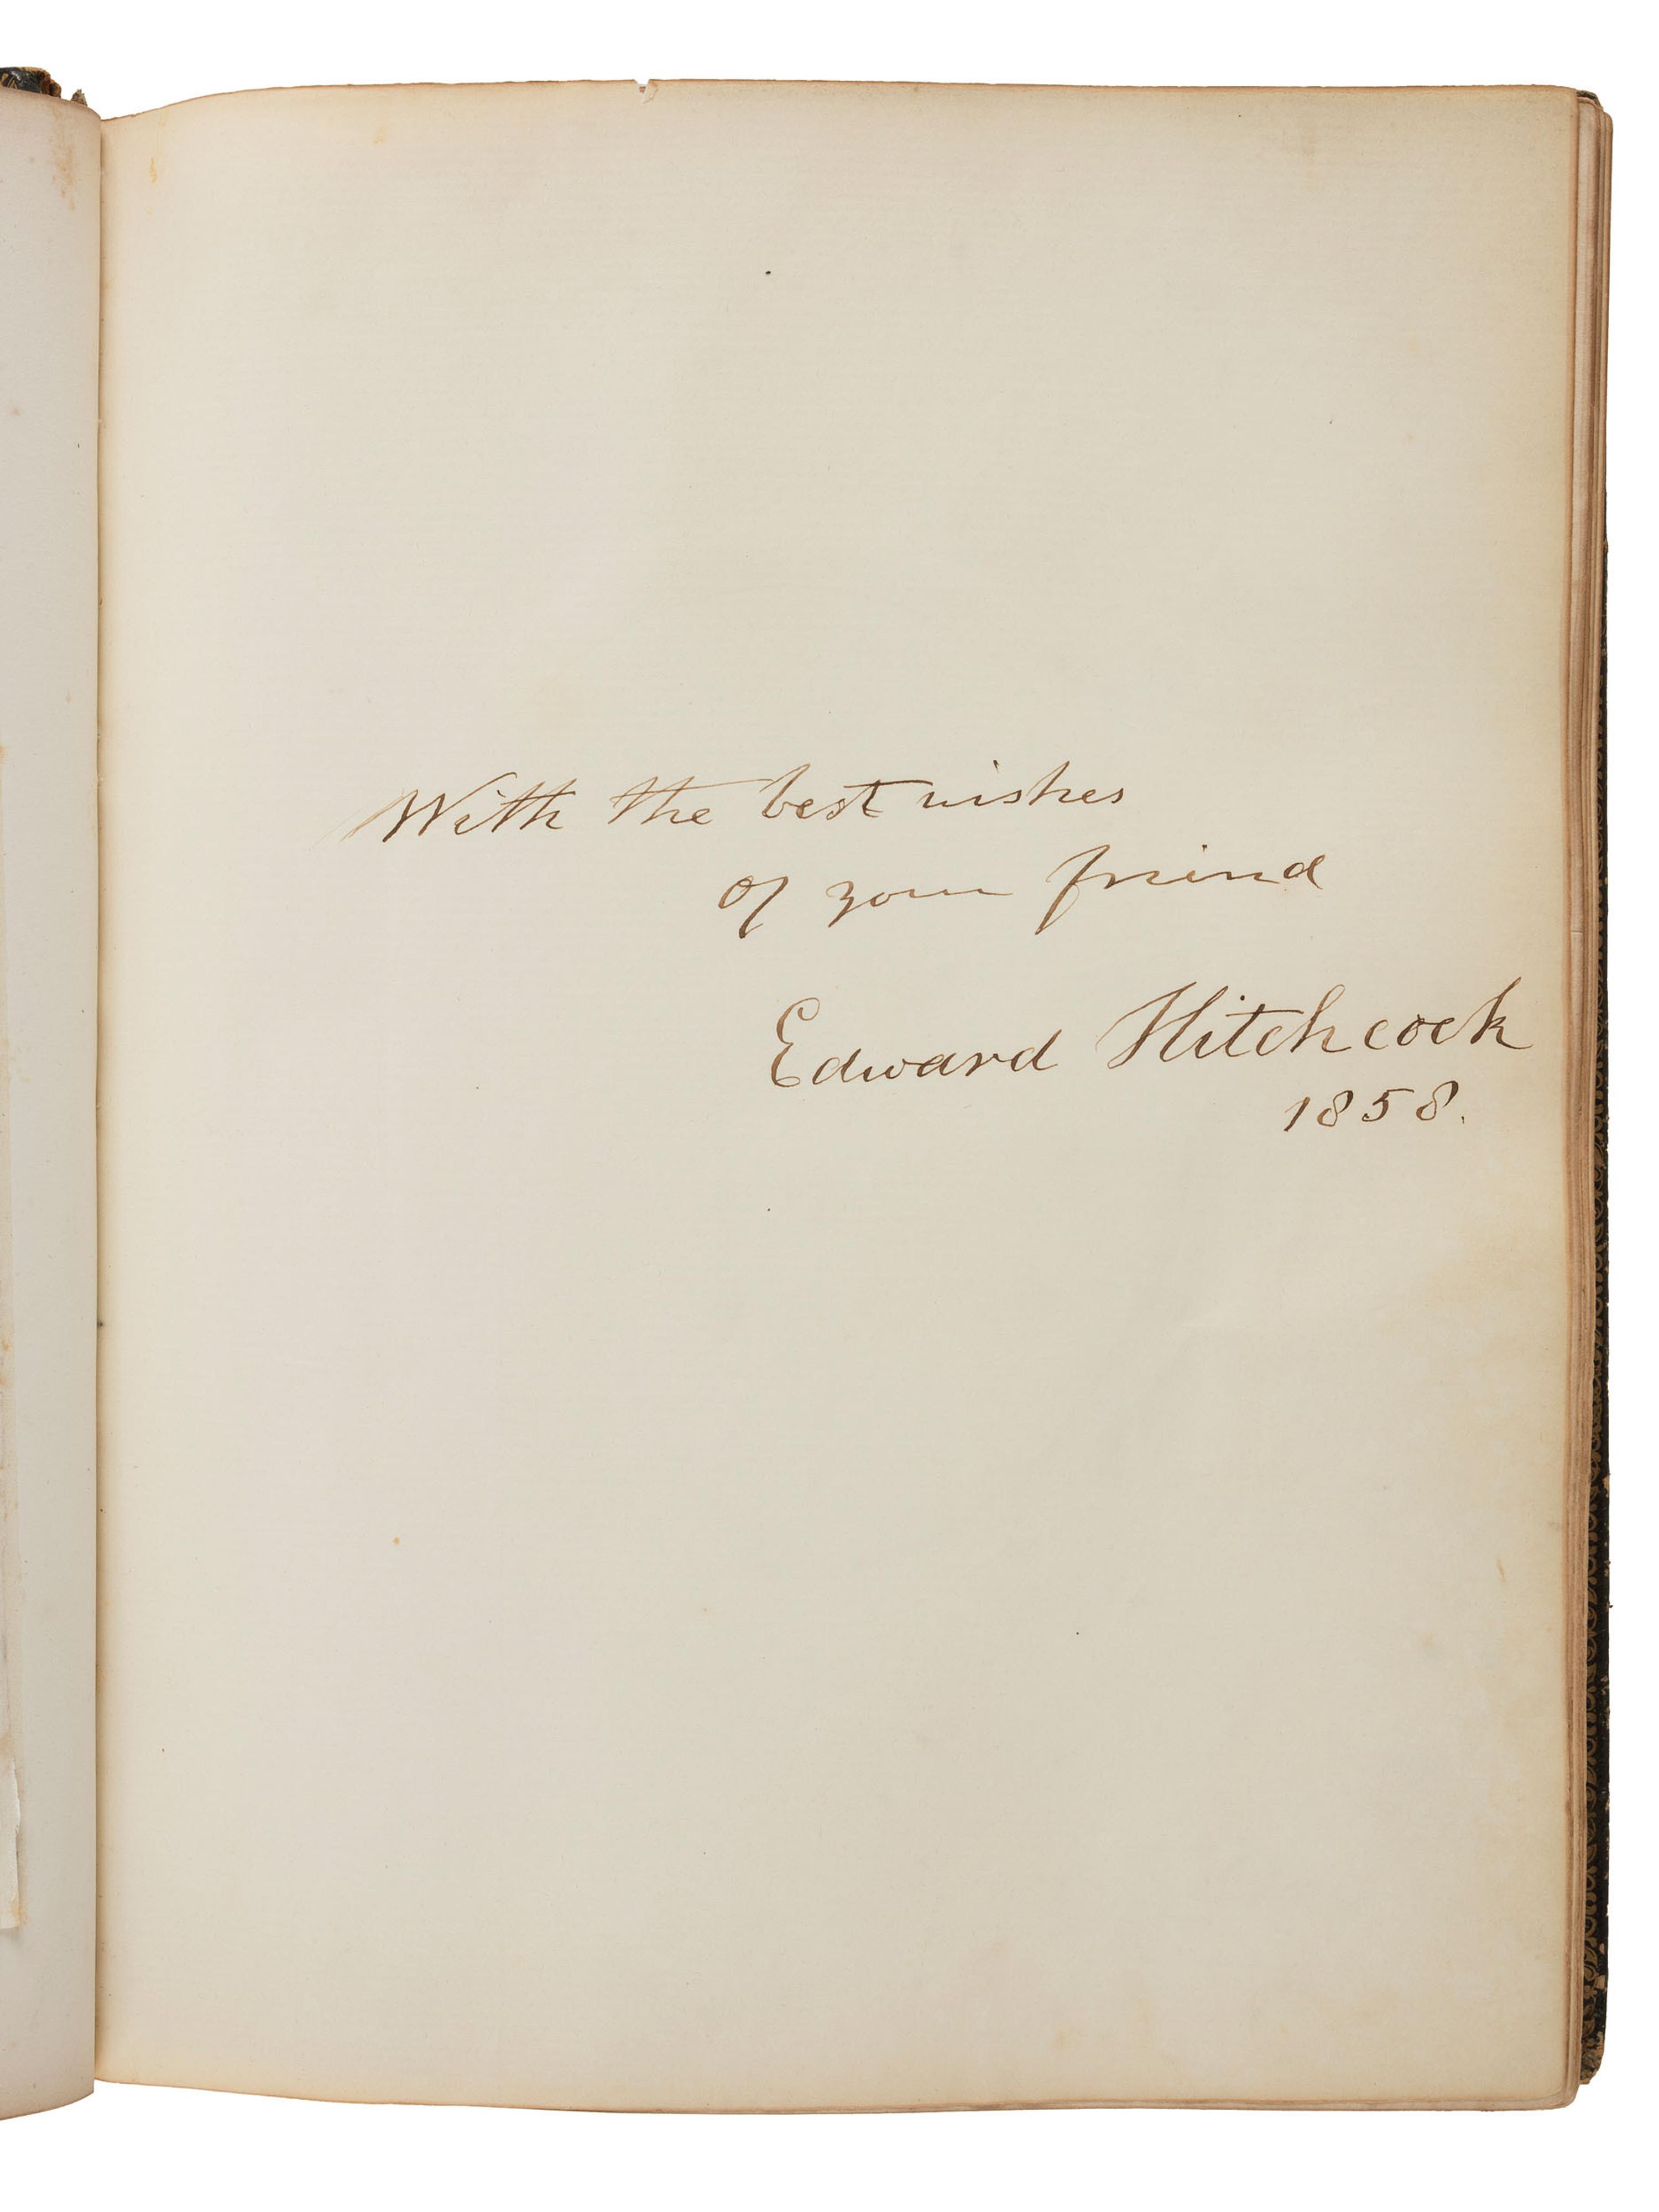 With the best wishes
of your friend
Edward Hitchcock
1858.